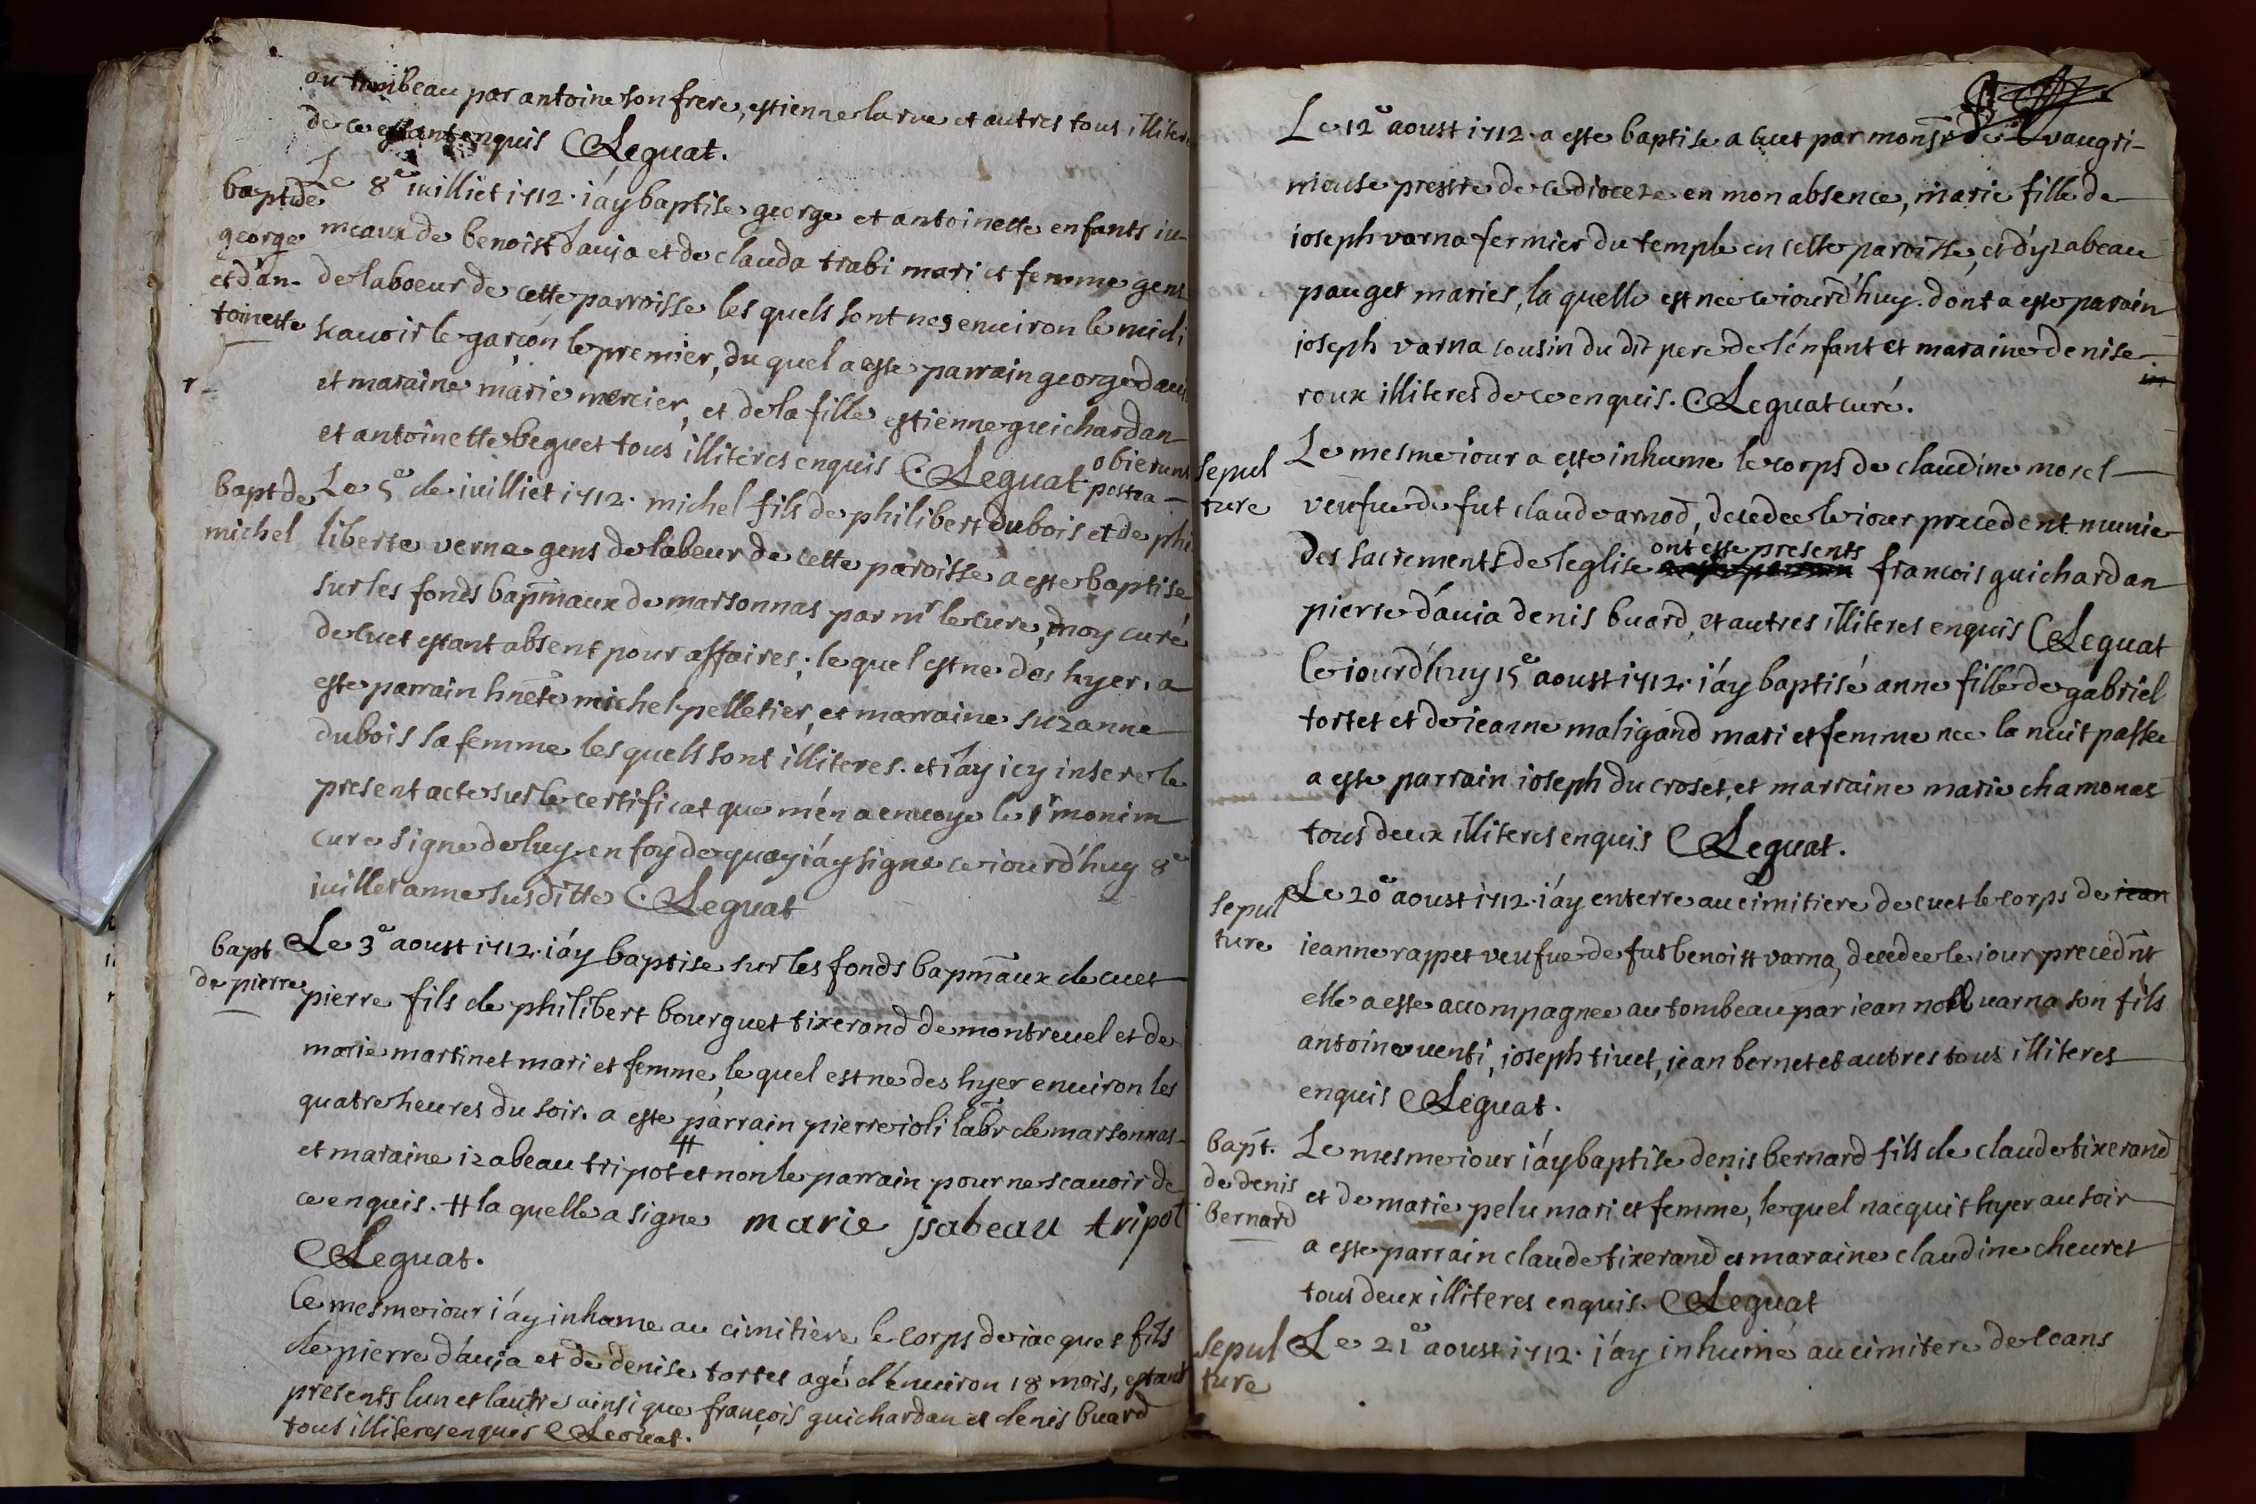 au tombeau par antoine son frere, estienne larue et autres tous illiteres
de ce estant enquis Leguat.
bapt de
george
et d'an-
toinette
Le 8e iuilliet 1712. i'ay baptise george et antoinette enfants iu-
meaux de benoist dauia et de clauda trabi mari et femme gens
de laboeur de cette parroisse les quels sont nes enuiron le midi
scauoir le garçon le premier, du quel a este parrain george daui
et maraine marie mercier, et de la fille estienne guichardan
et antoinette beguet tous illiteres enquis Leguat. obierunt
postea
bapt de
michel
Le 5e de iuilliet 1712. michel fils de philibert dubois et de phi
liberte verna gens de labeur de cette paroisse a este baptise
sur les fonds bapmaux de marsonnas par mr le cure, moy curé
de cuet estant absent pour affaires; le quel est ne des hyer. a
este parrain hnete michel pelletier, et marraine suzanne
dubois sa femme les quels sont illiteres. et i'ay icy insere le
present acte sur le certificat que m'en a enuoye le sr monim
cure signe de luy en foy de quoy i'ay signe ce iourd'huy 8e
iuillet anne susditte Leguat
bapt
de pierre
Le 3e aoust 1712. i'ay baptise sur les fonds bapmaux de cuet
pierre fils de philibert bourguet tixerand de montreuel et de
marie martinet mari et femme, le quel est ne des hyer enuiron les
quatre heures du soir. a este parrain pierre ioli labr de marsonnas
et maraine izabeau tripot # et non le parrain pour ne scauoir de
ce enquis. # la quelle a signe marie jsabeau tripot
Leguat.
Ce mesme iour i'ay inhume au cimitiere le corps de iacques fils
de pierre d'auia et de denise tortet agé d'enuiron 18 mois, estant
presents lun et lautre ainsi que françois guichardan et denis buard
tous illiteres enquis Leguat.
Le 12e aoust 1712. a este baptise a cuet par monsr de vaugri-
nieuse prestre de ce dioceze en mon absence, marie fille de
ioseph varna fermier du temple en cette paroisse, et d'yzabeau
pauget maries, la quelle est nee ce iourd'huy. dont a este parain
ioseph varna cousin du dit pere de l'enfant et maraine denise
roux illiteres de ce enquis. Leguat curé.
sepul
ture
Le mesme iour a este inhume le corps de claudine morel
veufue de fut claude arnod, decedee le iour precedent munie
des sacrements de leglise ont este presents francois guichardan
pierre d'auia denis buard, et autres illiteres enquis Leguat
Ce iourd'huy 15e aoust 1712. i'ay baptisé anne fille de gabriel
tortet et de ieanne maligand mari et femme nee la nuit passee
a este parrain ioseph du croset, et marraine marie chamonas
tous deux illiteres enquis Leguat.
sepul
ture
Le 20e aoust 1712. i'ay enterre au cimitiere de cuet le corps de iean
ieanne rappet veufue de fut benoitt varna, decedee le iour precednt
elle a este accompagnee au tombeau par iean noel uarna son fils
antoine uenti, ioseph tiuet, jean bernet et autres tous illiteres
enquis Leguat.
bapt.
de denis
bernard
Le mesme iour i'ay baptise denis bernard fils de claude tixerand
et de marie pelu mari et femme, le quel nacquit hyer au soir
a este parrain claude tixerand et maraine claudine cheuret
tous deux illiteres enquis. Leguat
sepul
ture
Le 21e aoust 1712. i'ay inhumé au cimitere de ceans